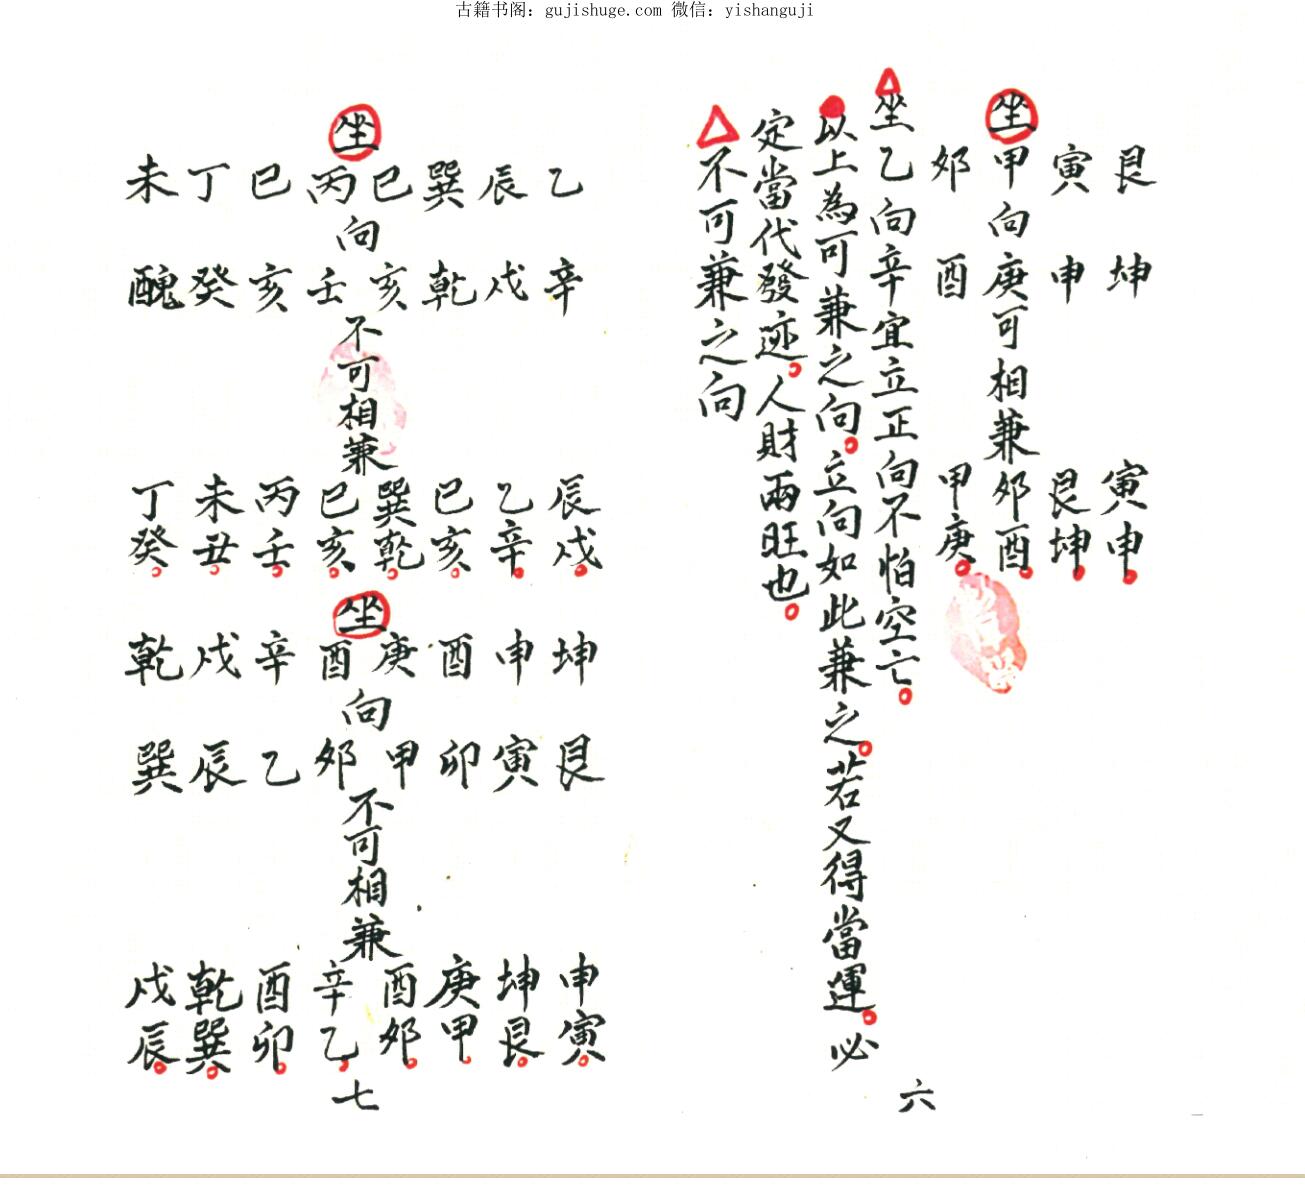 古籍书阁：gujishuge.com 微信：yishanguji
艮 坤 寅申
寅 申 艮坤
坐甲向庚可相兼夘酉
夘 酉 甲庚
坐乙向辛宜立正向不怕空亡
以上為可兼之向。立向如此兼之。若又得當運。必
定當代發迹。人財兩旺也。
不可兼之向
六
乙 辛 辰戌。
辰 戌 乙辛。
巽 乾 巳亥。
巳 亥 巽乾。
坐 向 不可相兼
丙 壬 巳亥。
巳 亥 丙壬。
丁 癸 未丑。
未 醜 丁癸。
坤 艮 申寅。
申 寅 坤艮。
酉 卯 庚甲。
庚 甲 酉夘。
坐 向 不可相兼
酉 夘 辛乙。
辛 乙 酉卯。
戌 辰 乾巽。
乾 巽 戌辰。
七